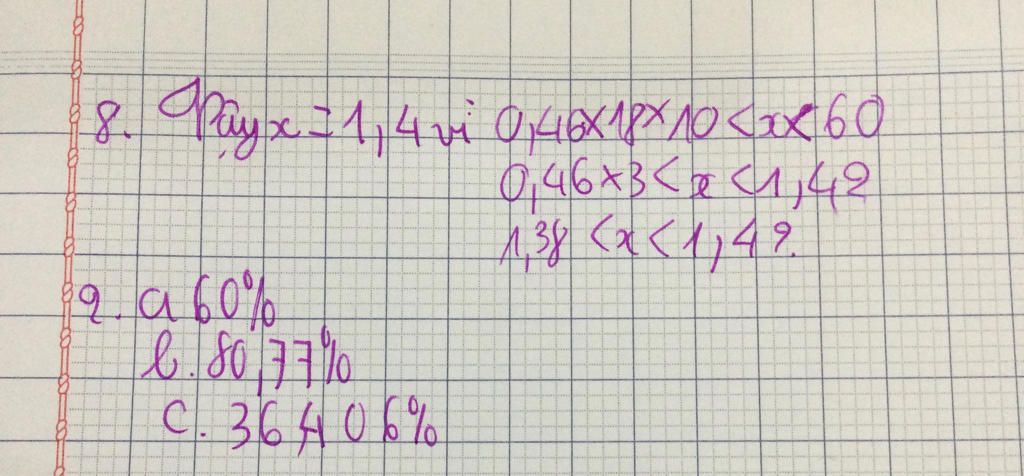 8. Vậy x = 1,4 vì 0,46×18×10 < x < 60
0,46×3 < x < 1,42
1,38 < x < 1,42.
9. a 60%
b. 80,77%
c. 36,406%